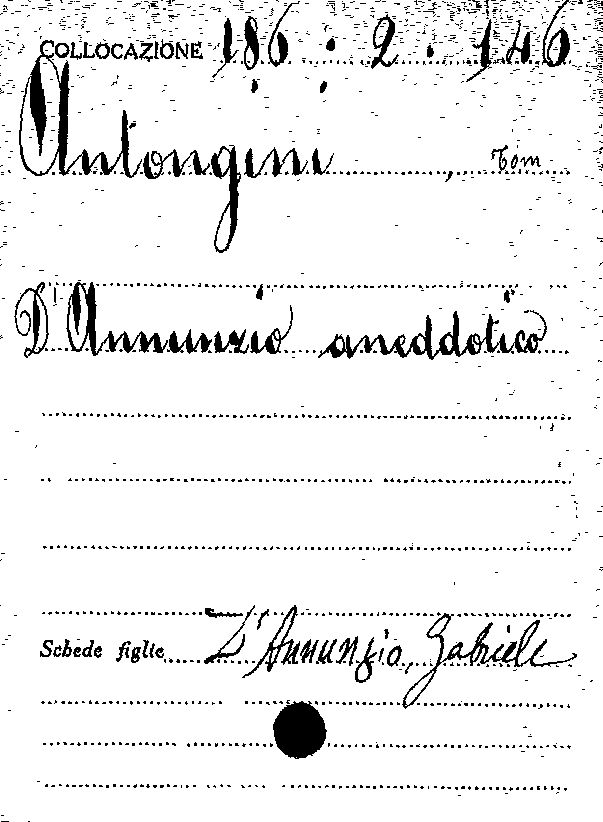 COLLOCAZIONE 186.2.146
Antongini, Tom
D'Annunzio aneddotico
Schede figlie D'Annunzio, Gabriele